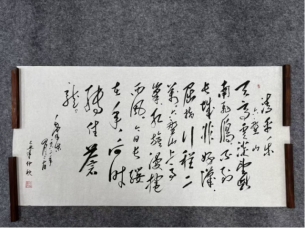 清平樂
六盘山
天高雲淡望断
南飞雁不到
长城非好漢
屈指行程二
萬六盘山上高
峰红旗漫捲
西風今日长缨
在手何时
缚住蒼
龍